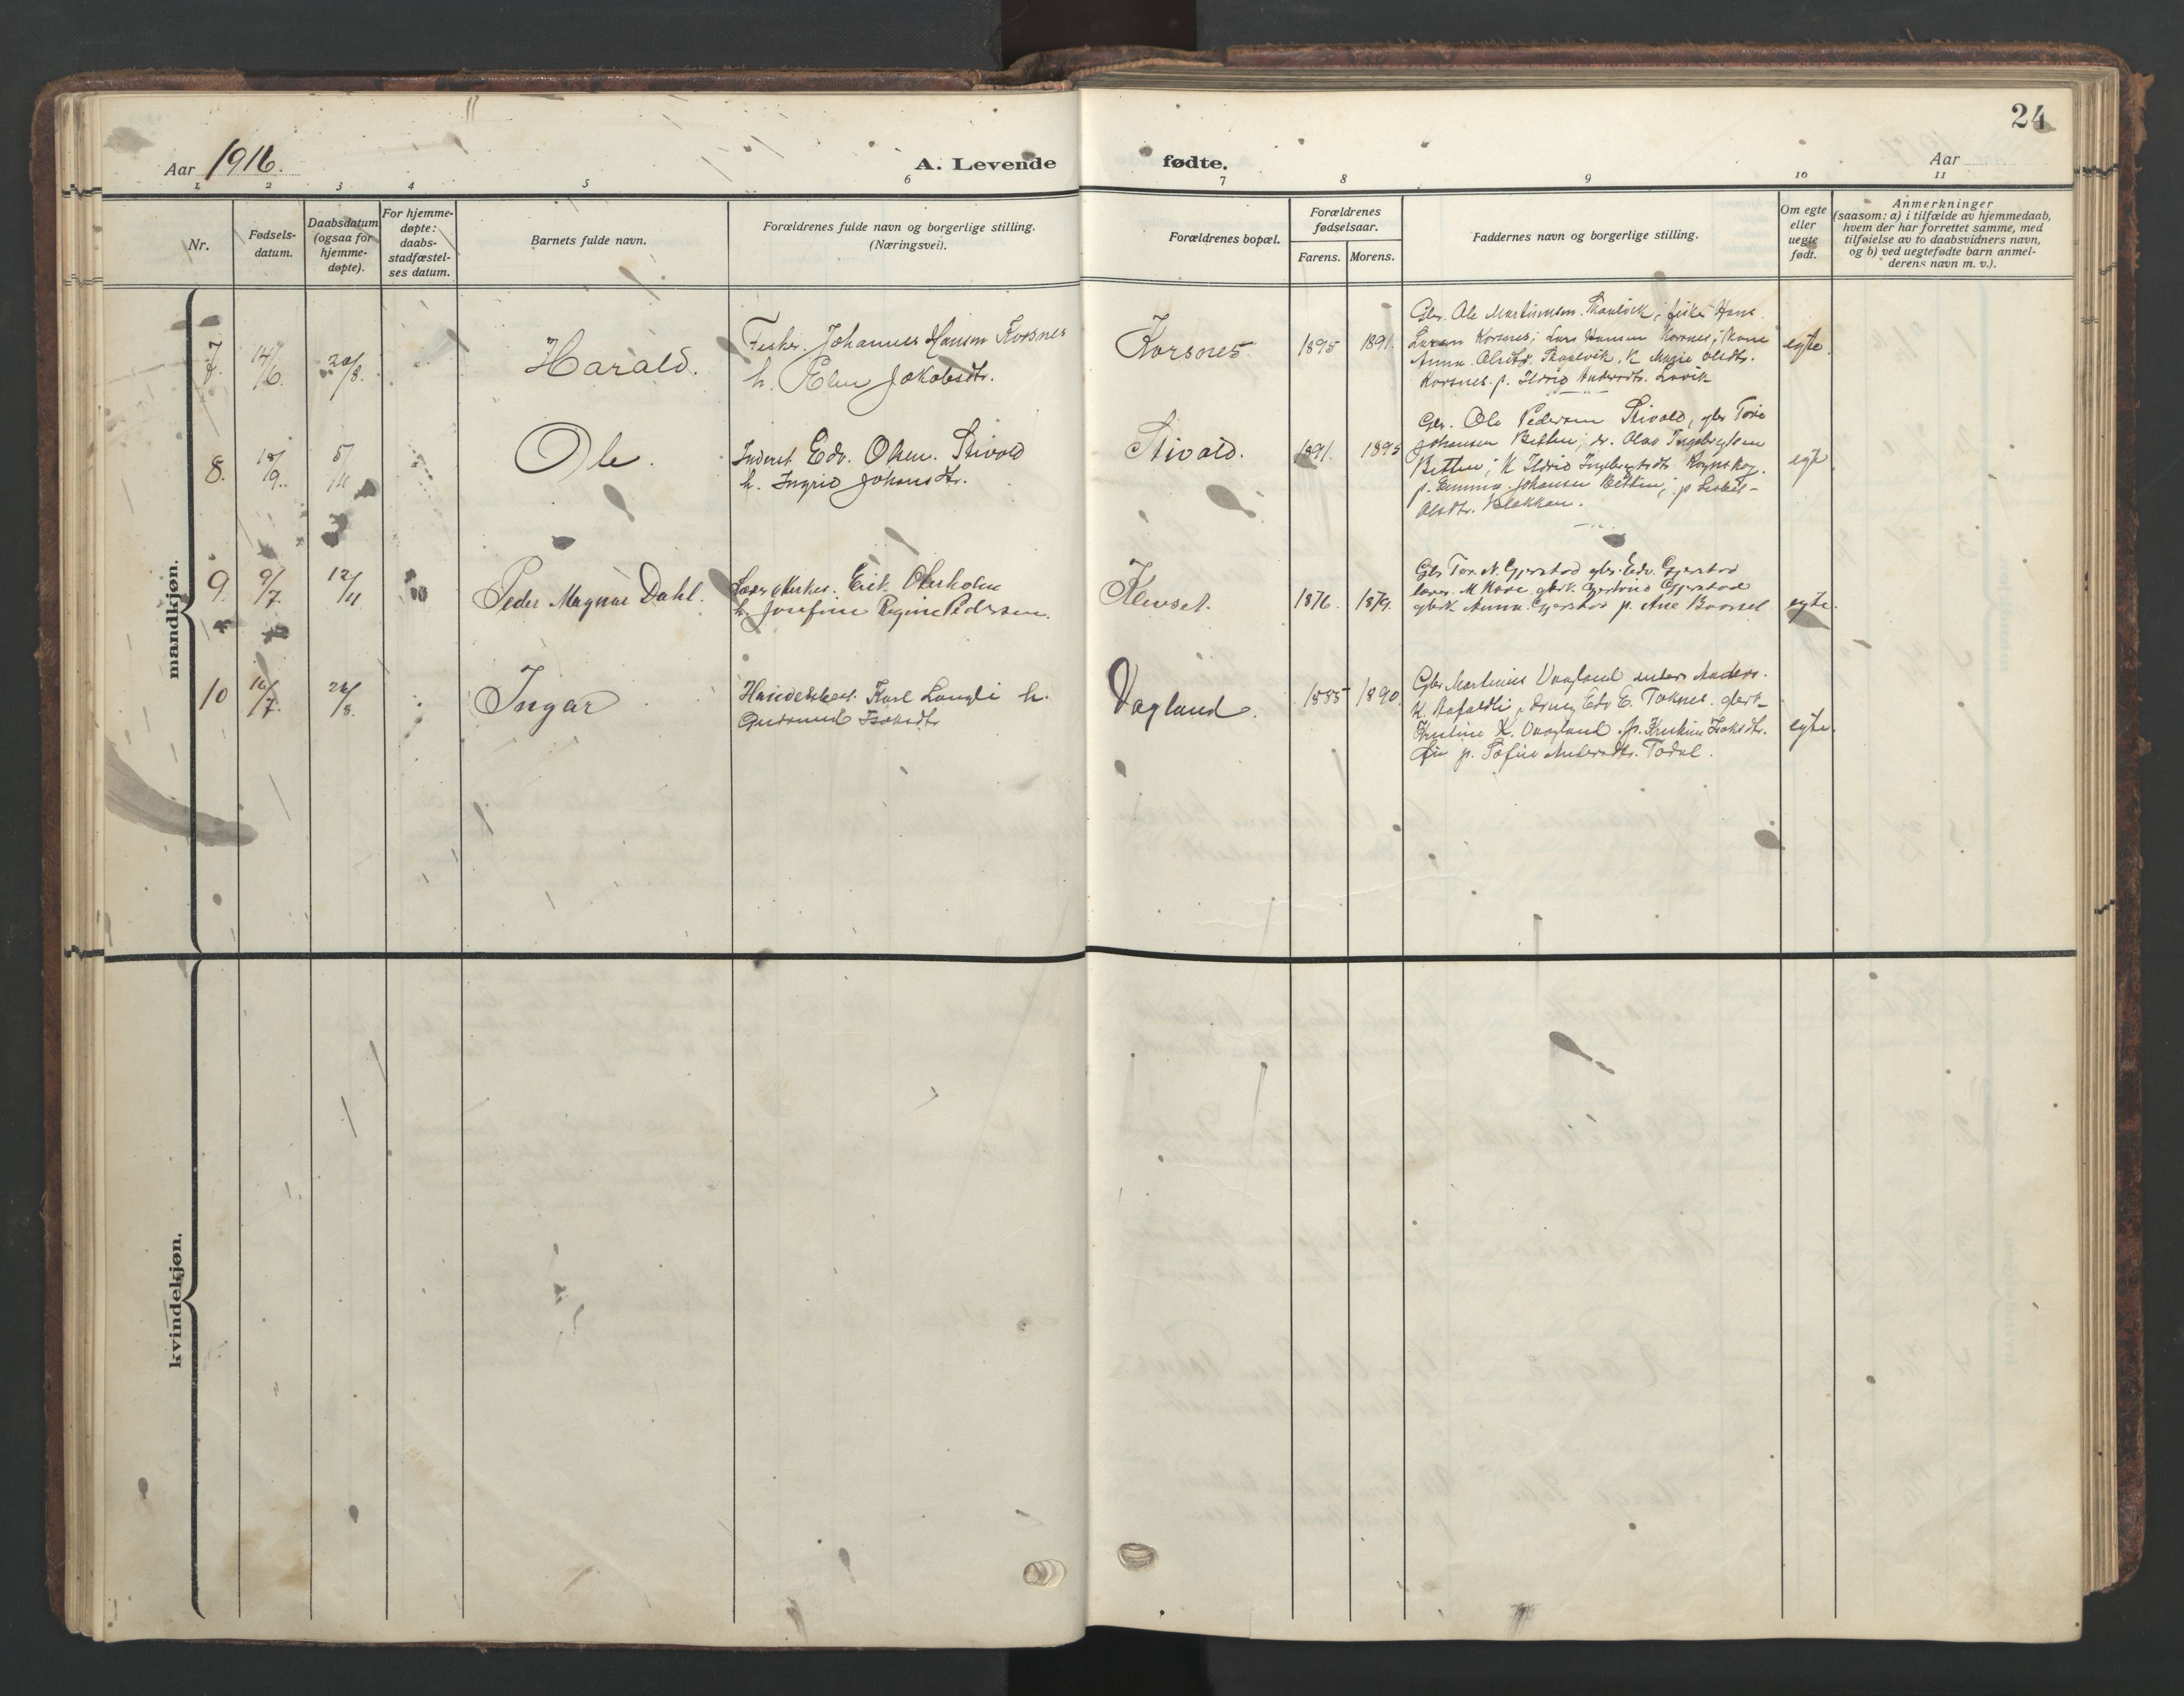 24
Aar 1916.
A. Levende fødte.
Aar
1 2 3 4 5 6 7 8 9 10 11
Nr.
Fødsels-
datum.
Daabsdatum
(ogsaa for
hjemme-
døpte).
For hjemme-
døpte:
daabs-
stadfæstel-
ses datum.
Barnets fulde navn.
Forældrenes fulde navn og borgerlige stilling.
(Næringsvei).
Forældrenes bopæl.
Forældrenes
fødselsaar.
Farens. Morens.
Faddernes navn og borgerlige stilling.
Om egte
eller
uegte
født.
Anmerkninger
(saasom: a) i tilfælde av hjemmedaab,
hvem der har forrettet samme, med
tilføielse av to daabsvidners navn,
og b) ved uegtefødte barn anmel-
derens navn m. v.).
mandkjøn.
7. 14/6. 20/8. Harald.
Fisker. Johannes Hansen Korsnes
h. Elen Jakobsdtr.
Korsnes. 1895 1891.
Gbr. Ole Martinusen ; fisker Hans
Larsen Korsnes; Lars Hansen Korsnes; Kone
Anna Olsdtr. K. Olsdtr.
Korsnes. p. Ildrid Andersdtr.
egte.
8. 18/9. 5/11 Ole.
Inderst Edv. Olsen. Stivold
h. Ingrid Johansdtr.
Stivold. 1891. 1895
Gbr. Ole Pedersen Stivold, gbr Tore
Johansen Betten; dr. Olav Ingebrigtsen
Betten; K Ildrid Ingebrigtsdtr
p. Emma Johansen Betten; p
Olsdtr. Blekken.
egte
9. 9/7. 12/11 Peder Magnar Dahl.
Erik
h. Josefine Regine Pedersen.
Klevset. 1876. 1879.
Gbr Tor N. Gjerstad gbr. Edv. Gjerstad
lærer. M gbrk. Gjerstad
gbrk Anna Gjerstad p. Ane
egte.
10 16/7. 26/8. Ingar
Karl Langli h.
Gudrund Isaksdtr
Vagland. 1885 1890.
Gbr Martinus Vaagland Anders
K. Edv E. Toknes. gbrk-
Kristine K. Vaagland. p. Isaksdtr.
Øie p. Sofie Andersdtr. Todal.
egte.
kvindekjøn.